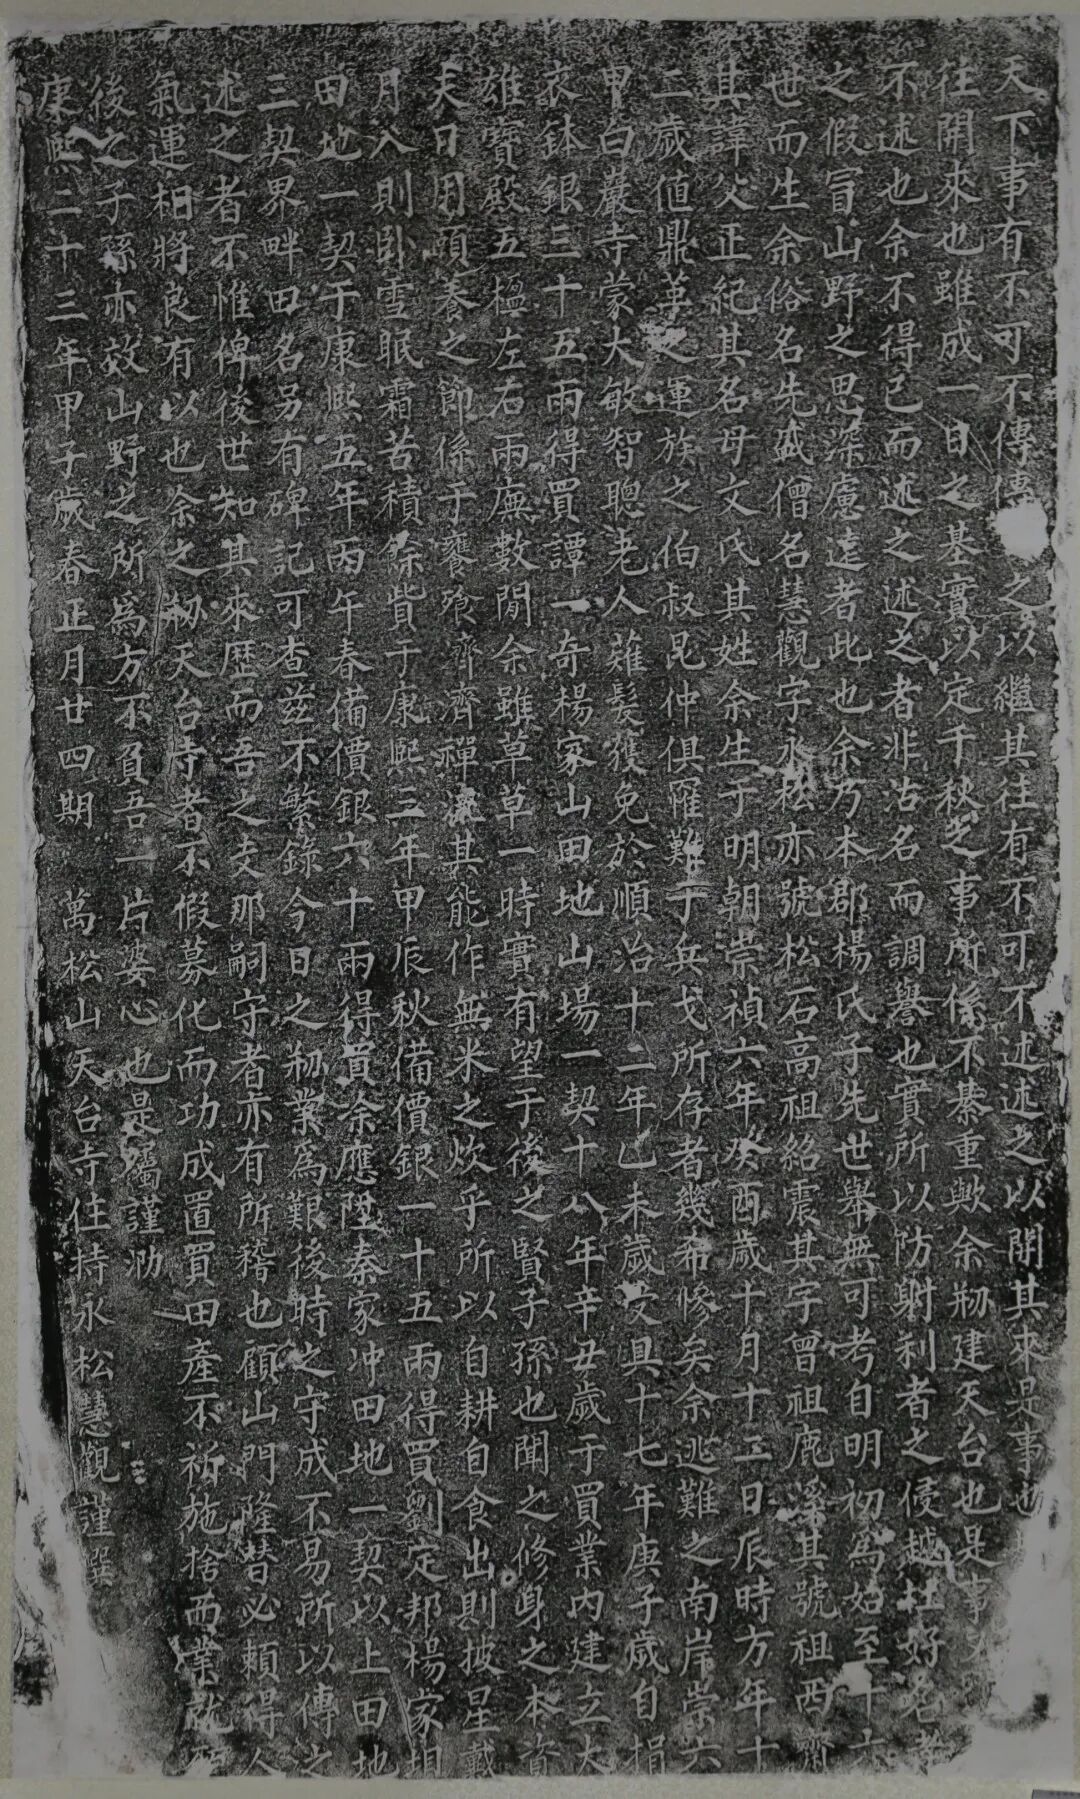 天下事有不可不傳傳之以繼其往有不可不述述之以開其來是事也
往開來也雖成一日之基實以定千秋之事所係不綦重歟余剏建天台也是事以
不述也余不得已而述之述之者非沽名而調譽也實所以防射利者之侵越杜好老者
之假冒山野之思深慮遠者此也余乃本郡楊氏子先世舉無可考自明初爲始至十六
世而生余俗名先盛僧名慧觀字永松亦號松石高祖紹震其字曾祖鹿溪其號祖西齋
其諱父正紀其名母文氏其姓余生于明朝崇禎六年癸酉歲十月十三日辰時方年十
二歲値鼎革之運族之伯叔昆仲俱罹難于兵戈所存者幾希慘矣余逃難之南岸崇六
甲白巖寺蒙大敏智聰老人薙髮獲免於順治十二年乙未歲受具十七年庚子歲自捐
衣鉢銀三十五兩得買譚一奇楊家山田地山場一契十八年辛丑歲于買業內建立大
雄寶殿五楹左右兩廡數間余雖草草一時實有望于後之賢子孫也聞之修身之本資
夫日用頤養之節係于饔飱齊濟禪流其能作無米之炊乎所以自耕自食出則披星戴
月入則卧雪眠霜苦積餘貲于康熙三年甲辰秋備價銀一十五兩得買劉定邦楊家垻
田地一契于康熙五年丙午春備價銀六十兩得買余應陞秦家冲田地一契以上田地
三契界畔田名另有碑記可查茲不繁錄今日之剏業爲艱後時之守成不易所以傳之
述之者不惟俾後世知其來歷而吾之支那嗣守者亦有所稽也顧山門隆替必賴得人
氣運相將良有以也余之剏天台寺者不假募化而功成置買田產不祈施捨而業就
後之子孫亦效山野之所爲方不負吾一片婆心也是囑謹泐
康熙二十三年甲子歲春正月廿四期 萬松山天台寺住持永松慧觀謹撰